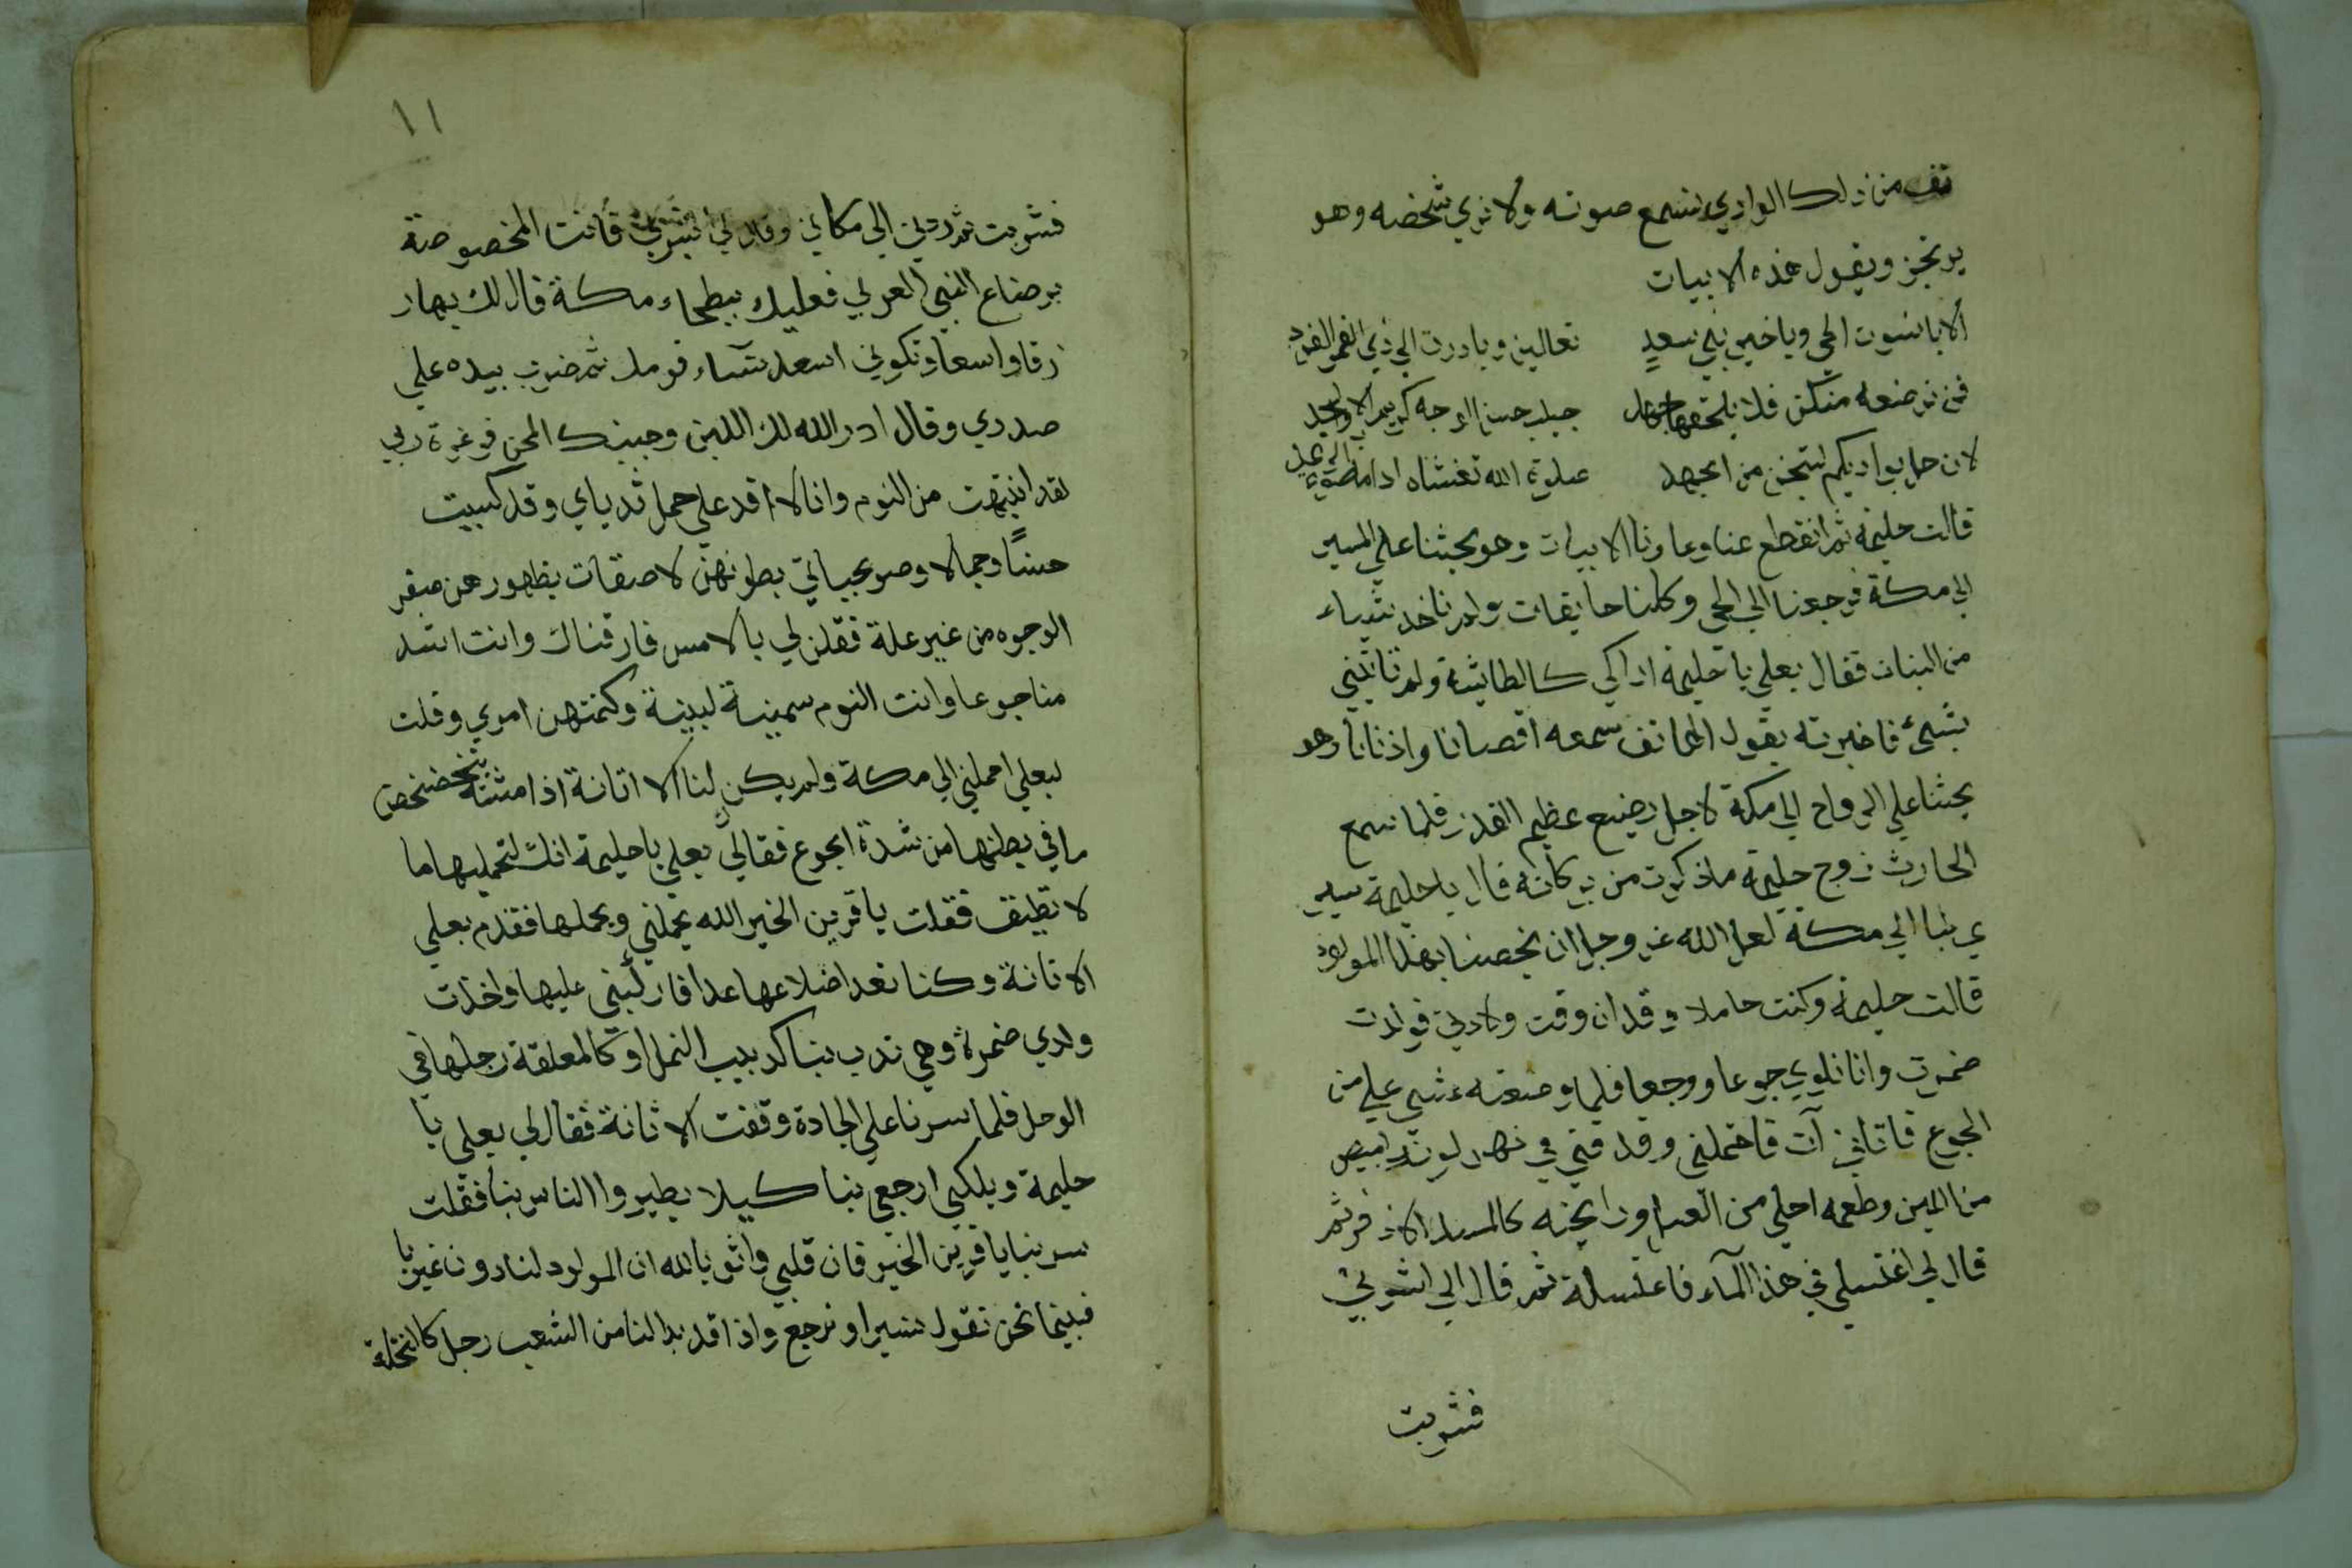 تف من ذلك الوادي نسمع صوته ولا نري شخصه وهو
يرتجز ويقول هذه الابيات
ألا يا نسوت الحي ويا خير بني سعد تعالين وبادرن الي ذي القمر الفرد
فمن ترضعه منكن فلا يلحقها جهد جيد حسن الوجه كريم الاب والجد
لان حل بواديكم لتنجن من الجهد صلوة الله تغشاه اداما
قالت حليمة ثم انقطع عنا وعاودنا الابيات وهو يحثنا علي المسير
الي مكة فرجعنا الي الحي وكلنا خايفات ولم ناخد شياء
من النبات فقال بعلي يا حليمة اراكي كالطايشة ولم تاتيني
بشيء فاخبرته بقول الهاتف سمعه اقصانا وادنانا وهو
يحثنا علي الرواح الي مكة لاجل رضيع عظيم القدر فلما سمع
الحارث زوج حليمة ماذكرت من بركاته قال يا حليمة سير
ي بنا الي مكة لعل الله عز وجل ان يخصنا بهذا المولود
قالت حليمة وكنت حاملا وقد ان وقت ولادتي فولدت
ضمرت وانا نلوي جوعا ووجعا فلما وضعته غشي علي من
الجوع فاتاني آت فاحملني وقد فني في نهر لونه ابيض
من اللبن وطعمه احلي من العسل ورايحته كالمسك الاذفر ثم
قال لي اغتسلي في هذا المآء فاغتسلة ثم قال الي اشربي
فشربت
١١
فشربت ثم ردني الي مكاني وقال لي ابشري فأنت المخصوصة
برضاع النبي العربي فعليك ببطحاء مكة فان لك بها ر
زقا واسعا وتكوني اسعد نسآء قومك ثم ضرب بيده علي
صدري وقال ادر الله لك اللبن وجنبك المحن فوعزة ربي
لقد انتبهت من النوم وانا لا اقد علي حمل ثدياي وقد كسيت
حسنًا وجمالا وصويحباتي بطونهن لاصقات بظهورهن صفر
الوجوه من غير علة فقلن لي بالامس فارقناك وانت اشد
منا جوعا وانت اليوم سمينة لبينة وكتمتهن امري وقلت
لبعلي احملني الي مكة ولم يكن لنا الا اتانة اذا مشت تخضخض
ما في بطنها من شدة الجوع فقالي بعلي يا حليمة انك لتحمليها ما
لا تطيق فقلت يا قرين الخير الله يحملني ويحملها فقدم بعلي
الاتانة وكنا نعد اضلاعها عدا فاركبني عليها واخذت
ولدي ضمرة وهي تدب بنا كدبيب النمل او كالمعلقة رجلها في
الوحل فلما سرنا علي الجادة وقفت الاتانة فقال لي بعلي يا
حليمة ويلكي ارجعي بنا كيلا يطيروا الناس بنا فقلت
سر بنا يا قرين الخير فان قلبي واثق بالله ان المولود لنا دون غيرنا
فبينما نحن نقول نسير او نرجع واذا قد بدا لنا من الشعب رجل كالنخلة